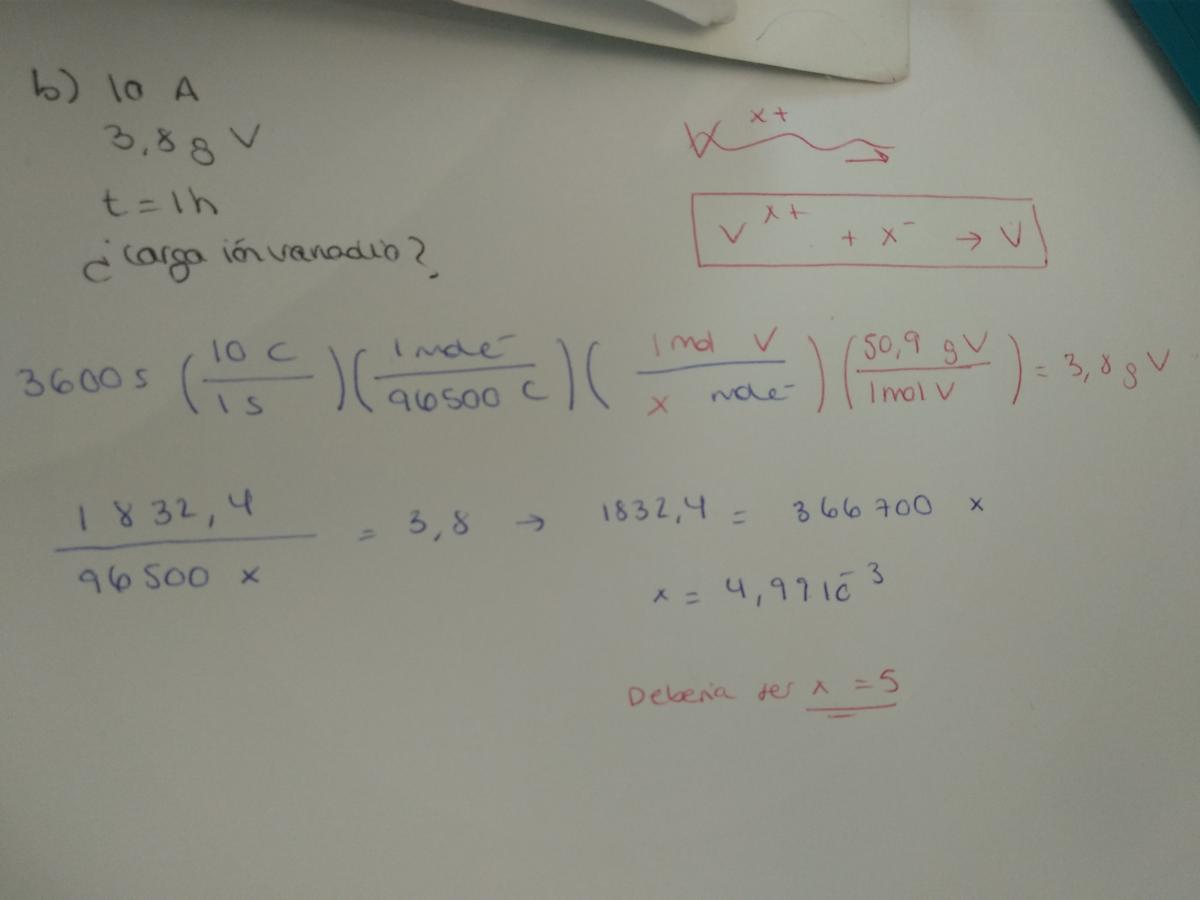 b) 10 A
3,8 g V
t = 1h
¿carga ión vanadio?
x+
V x+ + x⁻ → V
3600 s (10 C / 1 s) (1 mol e⁻ / 96500 C) (1 mol V / x mol e⁻) (50,9 g V / 1 mol V) = 3,8 g V
1832,4 / 96500 x = 3,8 → 1832,4 = 366700 x
x = 4,99 10⁻³
Deberia ser x = 5